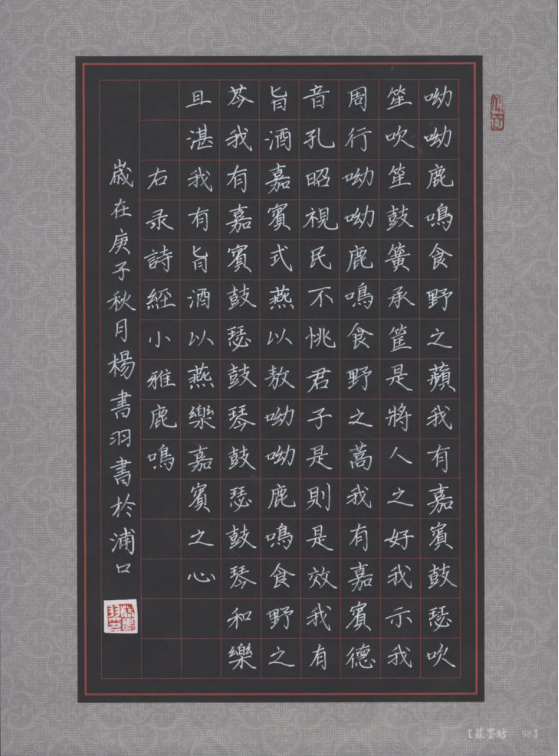 呦呦鹿鳴食野之蘋我有嘉賓鼓瑟吹
笙吹笙鼓簧承筐是將人之好我示我
周行呦呦鹿鳴食野之蒿我有嘉賓德
音孔昭視民不恌君子是則是效我有
旨酒嘉賓式燕以敖呦呦鹿鳴食野之
芩我有嘉賓鼓瑟鼓琴鼓瑟鼓琴和樂
且湛我有旨酒以燕樂嘉賓之心
右录詩經小雅鹿鳴
嵗在庚子秋月楊書羽書於浦口